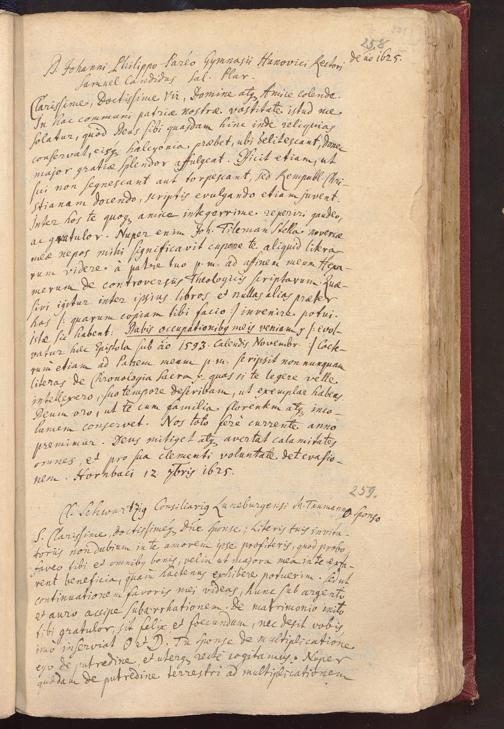 258.
D. Johanni Philippo Pareo Gymnasii Hanovici Rectori de ao 1625.
Samuel Candidus Sal. Plur.
Clarissime, Doctissime Vir, Domine atq Amice colende.
In hac communi patriæ nostræ vastitate istud me
solatur, quod Deus sibi quasdam hinc inde reliquias
conservat, eisq halcyonia præbet, ubi delitescant, donec
major gratiæ splendor affulgeat. Efficit etiam, ut
sui non segnescant aut torpescant, sed Rempubl. Chri-
stianam docendo, scriptis evulgando etiam juvent.
Inter hos te quoq, amice integerrime reperiri gaudeo,
ac gratulor. Nuper enim Joh. Tileman Stella novercæ
meæ nepos mihi significavit cupere te aliquid litera-
rum videre à patre tuo p. m. ad afinem meum
de controversiis Theologicis scriptarum. Quæ-
sivi igitur inter ipsius libros et nullas alias præter
has /: quarum copiam tibi facio :/ invenire potui.
istæ sic habent: Dabis occupationibq meis veniam
hæc Epistola sub ao 1593. Calendis Novembr. :/
etiam ad Patrem meum p. m. scripsit nonnunquam
literas de Chronologia Sacra, quas si te legere velle
intellexero, suo tempore describam, ut exemplar habeas
Deum oro, ut te cum familia florentem atq inco-
lumem conservet. Nos toto ferè currente anno
premimur. Deus mitiget atq avertat calamitates
omnes, et pro sua clementi voluntate det evasio-
nem. Hornbaci 12 7bris 1625.
259.
Schwartzig Consiliariq Luneburgensi M. Taumanno Sponso
S. Clarissime, doctissimeq Dne Sponse; literis tuis invita-
toriis non dubium in te amorem ipse profiteris, quod probo
faveo tibi et omnibq bonis, velim ut majora mea in te
rent beneficia, quam hactenus exhibere potuerim. Sed ut
continuationem favoris mei videas, hunc
et auro accipe subarrhationem. de matrimonio inito
tibi gratulor, sit felix et foecundum, nec desit vobis
imò inserviat O et D. Tu sponse de multiplicatione
ego de putredine, et uterq rectè cogitamus. Nuper
quædam de putredine terrestri ad multiplicationem